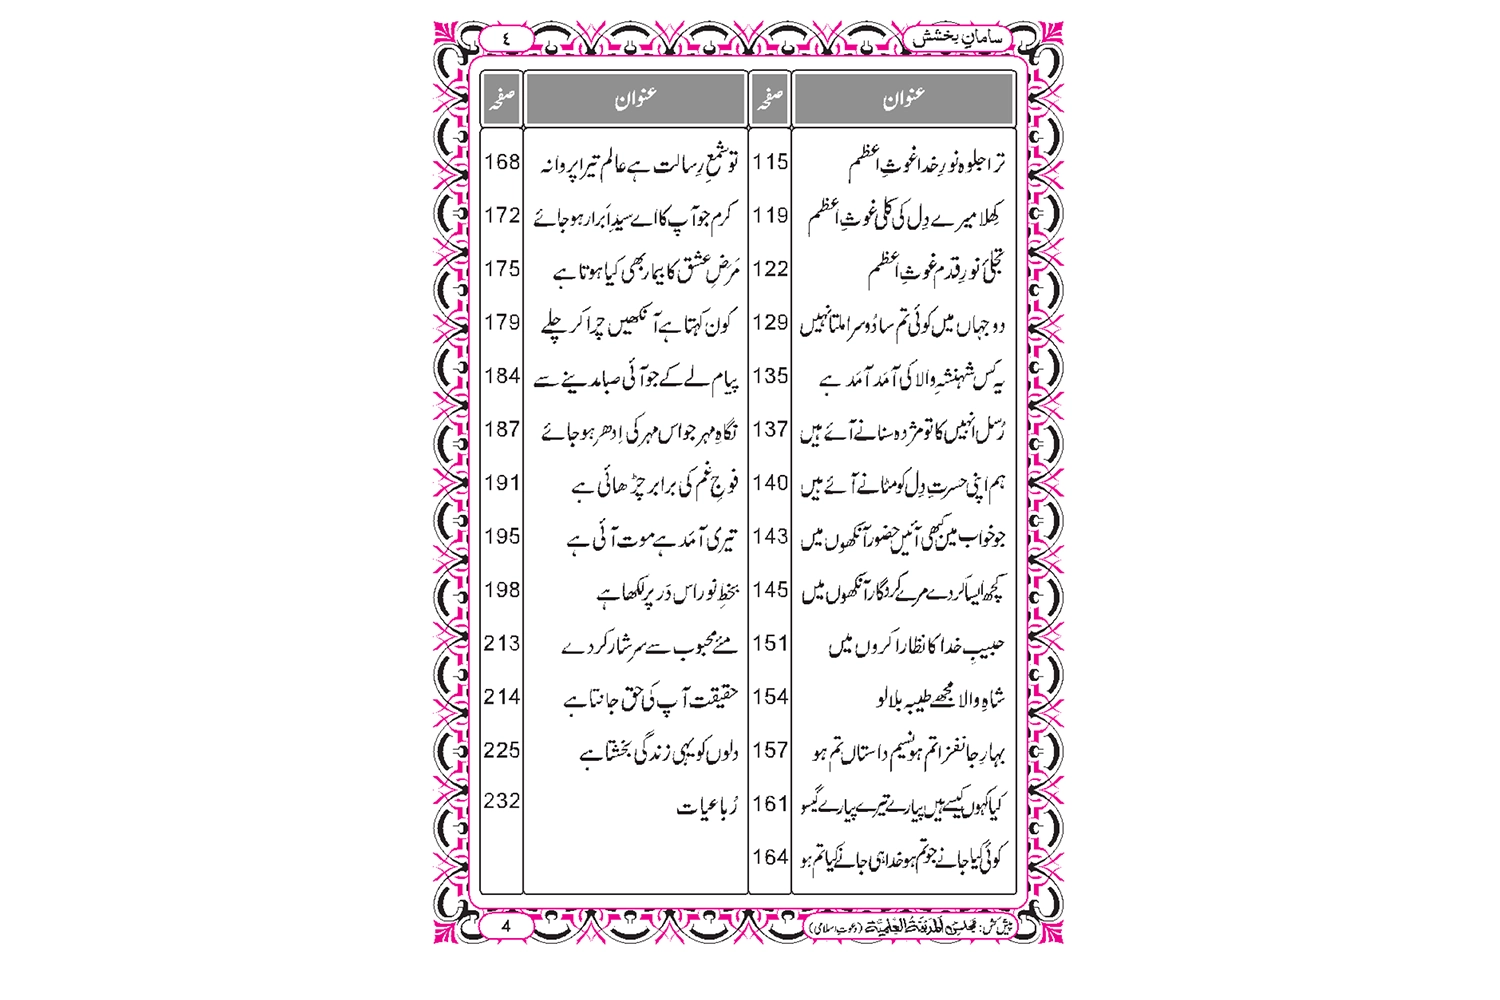 سامانِ بخشش ٤
عنوان صفحہ عنوان صفحہ
ترا جلوہ نورِ خدا غوثِ اعظم 115
کھِلا میرے دِل کی کلی غوثِ اعظم 119
تجلیٔ نورِ قِدم غوثِ اعظم 122
دو جہاں میں کوئی تم سا دُوسرا ملتا نہیں 129
یہ کس شہنشہِ والا کی آمَد آمَد ہے 135
رُسل انہیں کا تو مژدہ سنانے آئے ہیں 137
ہم اپنی حسرتِ دِل کو مٹانے آئے ہیں 140
جو خواب میں کبھی آئیں حضور آنکھوں میں 143
کچھ ایسا کردے مرے کردگار آنکھوں میں 145
حبیبِ خدا کا نظارا کروں میں 151
شاہِ والا مجھے طیبہ بلا لو 154
بہارِ جانفزا تم ہو نسیم داستاں تم ہو 157
کیا کہوں کیسے ہیں پیارے تیرے پیارے گیسو 161
کوئی کیا جانے جو تم ہو خدا ہی جانے کیا تم ہو 164
تو شمعِ رِسالت ہے عالم تیرا پروانہ 168
کرم جو آپ کا اے سیدِ اَبرار ہوجائے 172
مَرَضِ عشق کا بیمار بھی کیا ہوتا ہے 175
کون کہتا ہے آنکھیں چرا کر چلے 179
پیام لے کے جو آئی صبا مدینے سے 184
نگاہِ مہر جو اس مہر کی اِدھر ہوجائے 187
فوجِ غم کی برابر چڑھائی ہے 191
تیری آمَد ہے موت آئی ہے 195
بخطِ نور اس دَر پر لکھا ہے 198
مئے محبوب سے سرشار کردے 213
حقیقت آپ کی حق جانتا ہے 214
دلوں کو یہی زندگی بخشتا ہے 225
رُباعیات 232
پیش کش: مجلس المدینۃ العلمیۃ (دعوتِ اسلامی) 4